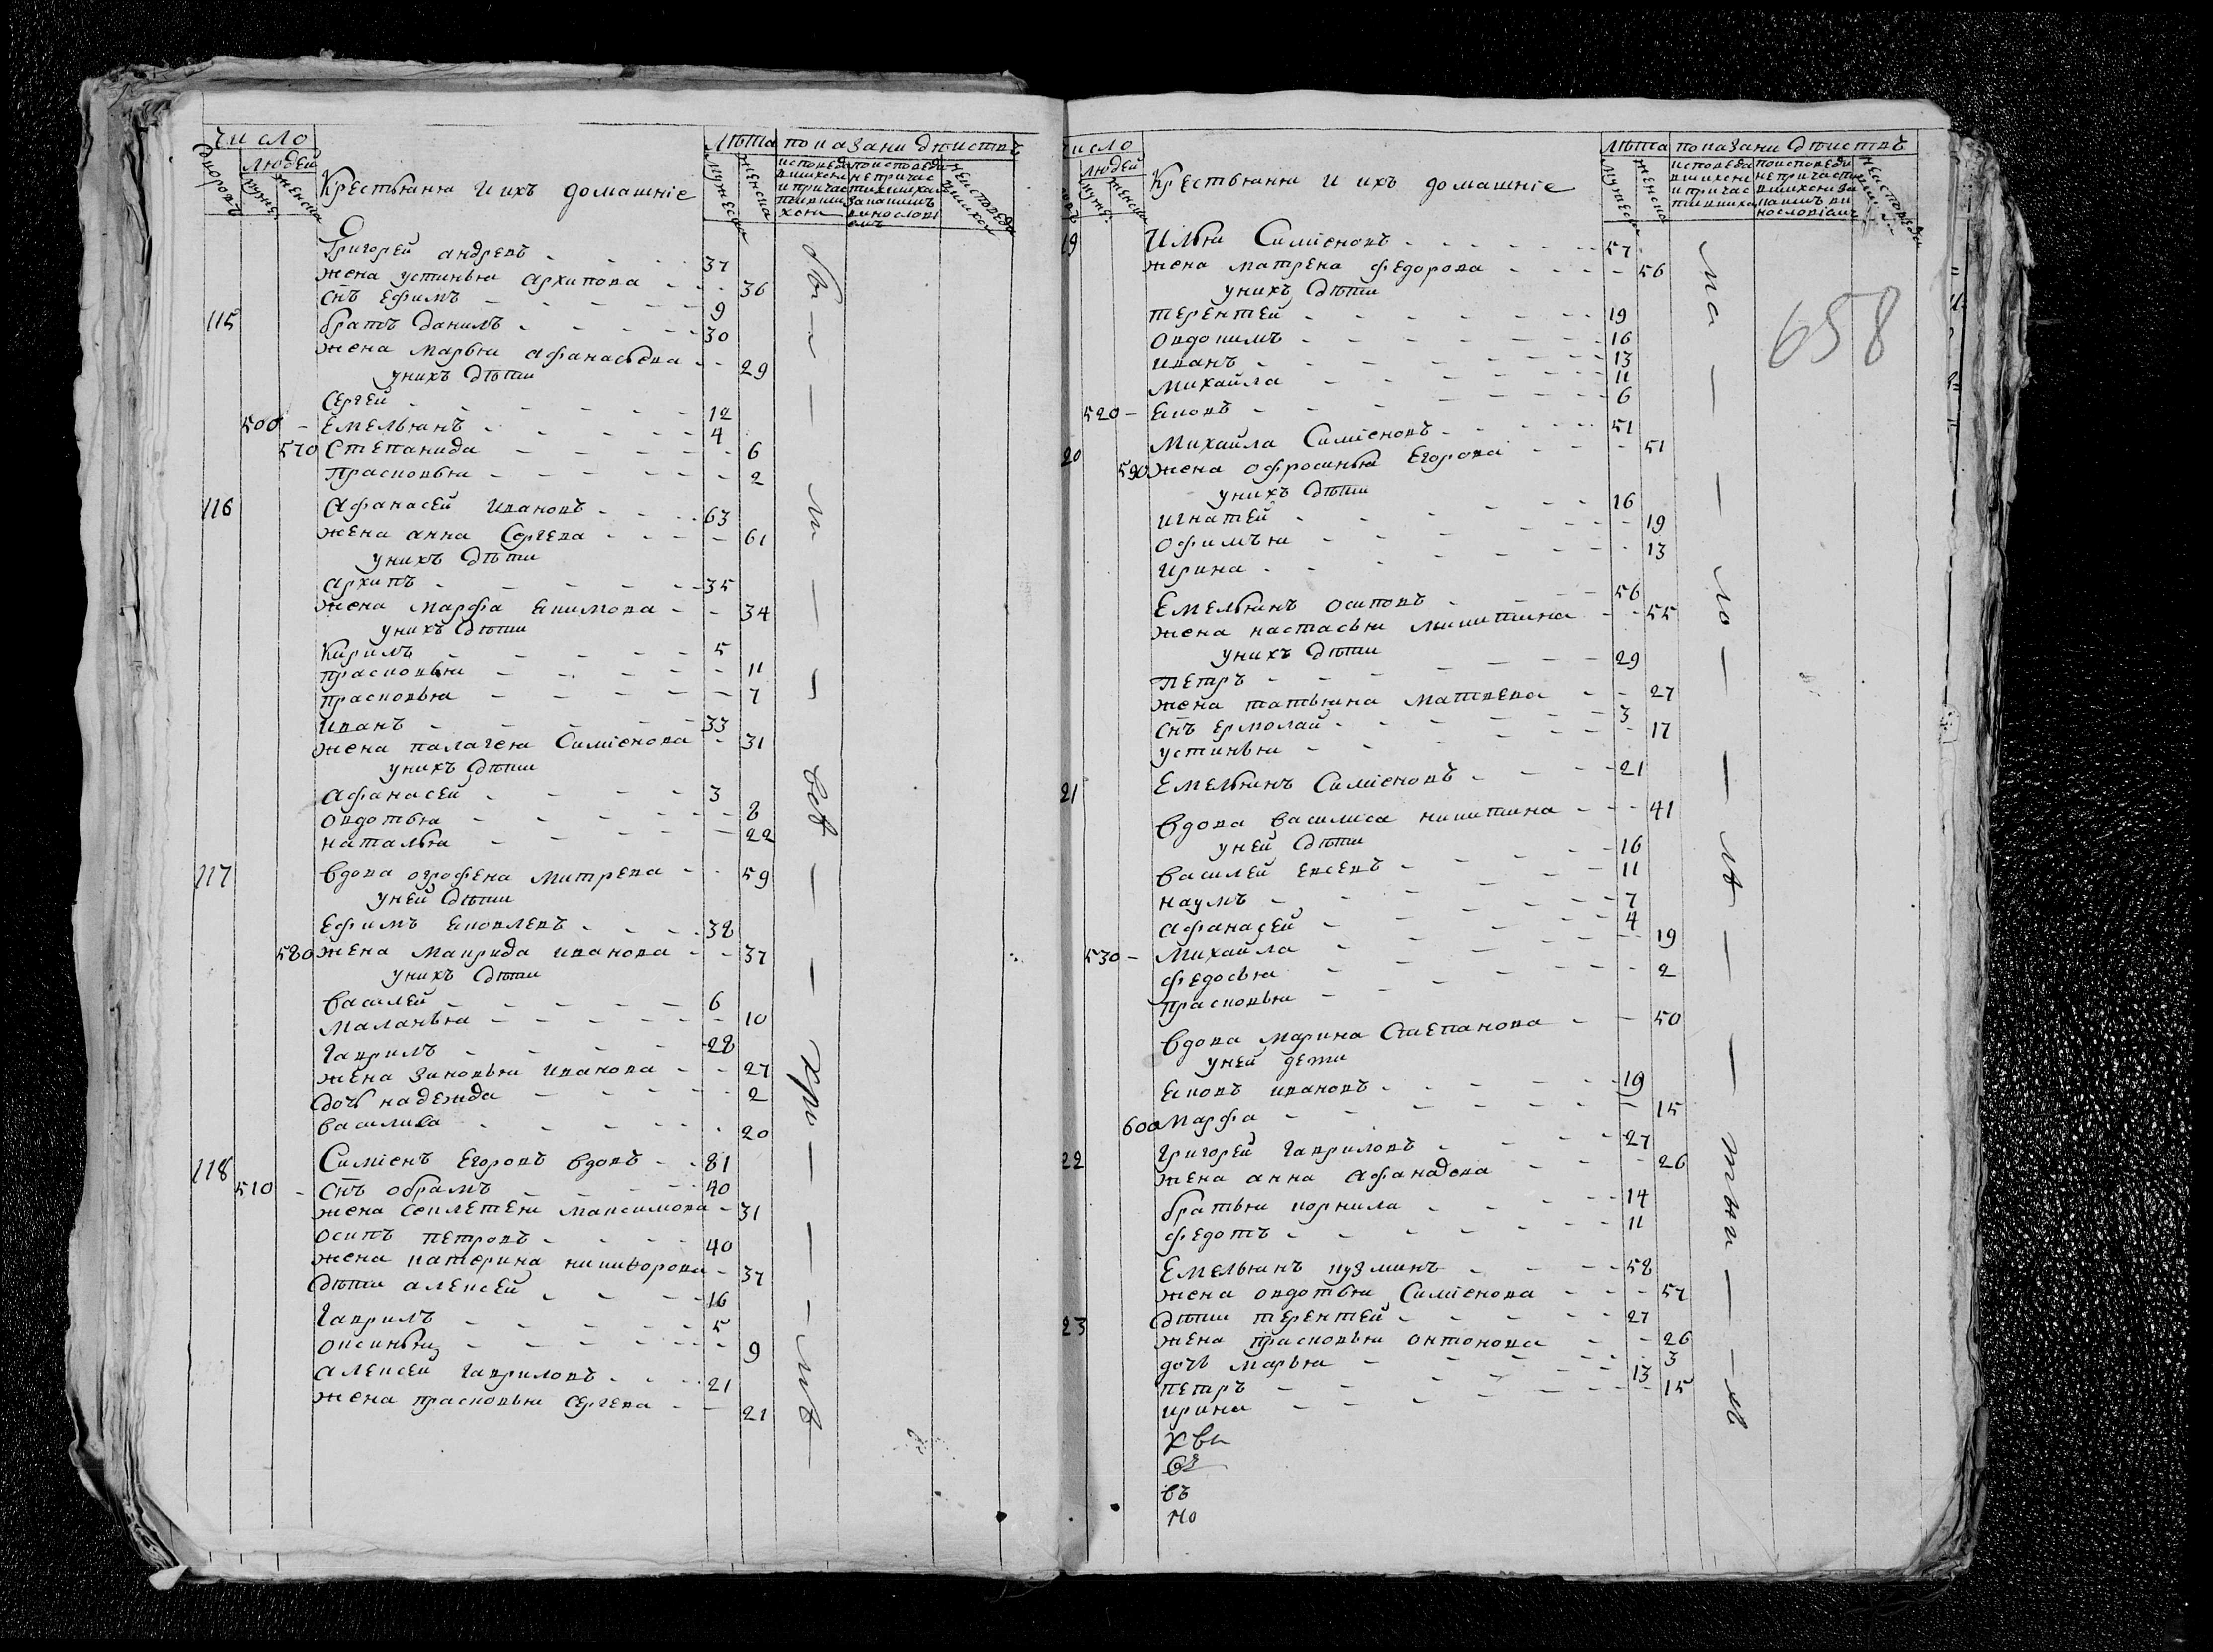 число
дворовъ
людей
мужес
женска
Крестьяня и ихъ домашніе
лѣта
мужеска
женска
показани действъ
исповеда
вшихся
и причас
тивши
хся
поисповеда
не причас
тившихся
за какимъ
винословi
емъ
неисповеда
вшихся
Григорей андревъ 37
жена устинья архипова 36
снъ ефимъ 9
115 братъ данилъ 30
жена марья афанасьева 29
унихъ дѣти
сергей 12
500 емельянъ 4
570 степанида 6
прасковья 2
116 афанасей ивановъ 63
жена анна сергева 61
унихъ дѣти
архипъ 35
жена марфа екимова 34
унихъ дѣти
кирилъ 5
прасковья 11
прасковья 7
иванъ 33
жена палагея симіенова 31
унихъ дѣти
афанасей 3
овдотья 8
наталья 22
117 вдова огрофена митрева 59
уней дѣти
ефимъ яковлевъ 38
580 жена маврида иванова 37
унихъ дѣти
василей 6
маланья 10
гаврилъ 28
жена зиновья иванова 27
дочь надежда 2
василиса 20
118 симіенъ егоровъ вдовъ 81
510 снъ обрамъ 40
жена секлетея максимова 31
осипъ петровъ 40
жена катерина никифорова 37
дѣти алексей 16
гаврилъ 5
оксинья 9
алексей гавриловъ 21
жена прасковья сергева 21
число
людей
мужес
женска
Крестьяня и ихъ домашніе
лѣта
мужеска
женска
показани действъ
исповеда
вшихся
и причас
тившихся
поисповеди
не причасти
вшихся за
какимъ ви
нословіемъ
658
19 Илья симіеновъ 57
жена матрена федорова 56
унихъ дѣти
терентей 19
овдокимъ 16
иванъ 13
михайла 11
520 яковъ 6
20 михайла симіеновъ 51
590 жена офросинья егорова 51
унихъ дѣти
игнатей 16
офимья 19
ирина 13
емельянъ осиповъ 56
жена настасья микитина 55
унихъ дѣти
петръ 29
жена татьяна матвева 27
снъ ермолай 3
устинья 17
21 емельянъ симіеновъ 21
вдова василиса никитина 41
уней дѣти
василей евсевъ 16
наумъ 11
афанасей 7
530 михайла 4
федосья 19
прасковья 2
вдова марина степанова 50
уней дети
яковъ ивановъ 19
600 марфа 15
22 григорей гавриловъ 27
жена анна афанасева 26
братья корнила 14
федотъ 11
емельянъ кузминъ 58
жена овдотья симіенова 57
23 дѣти терентей 27
жена прасковья онтонова 26
дочь марья 3
петръ 13
ирина 15